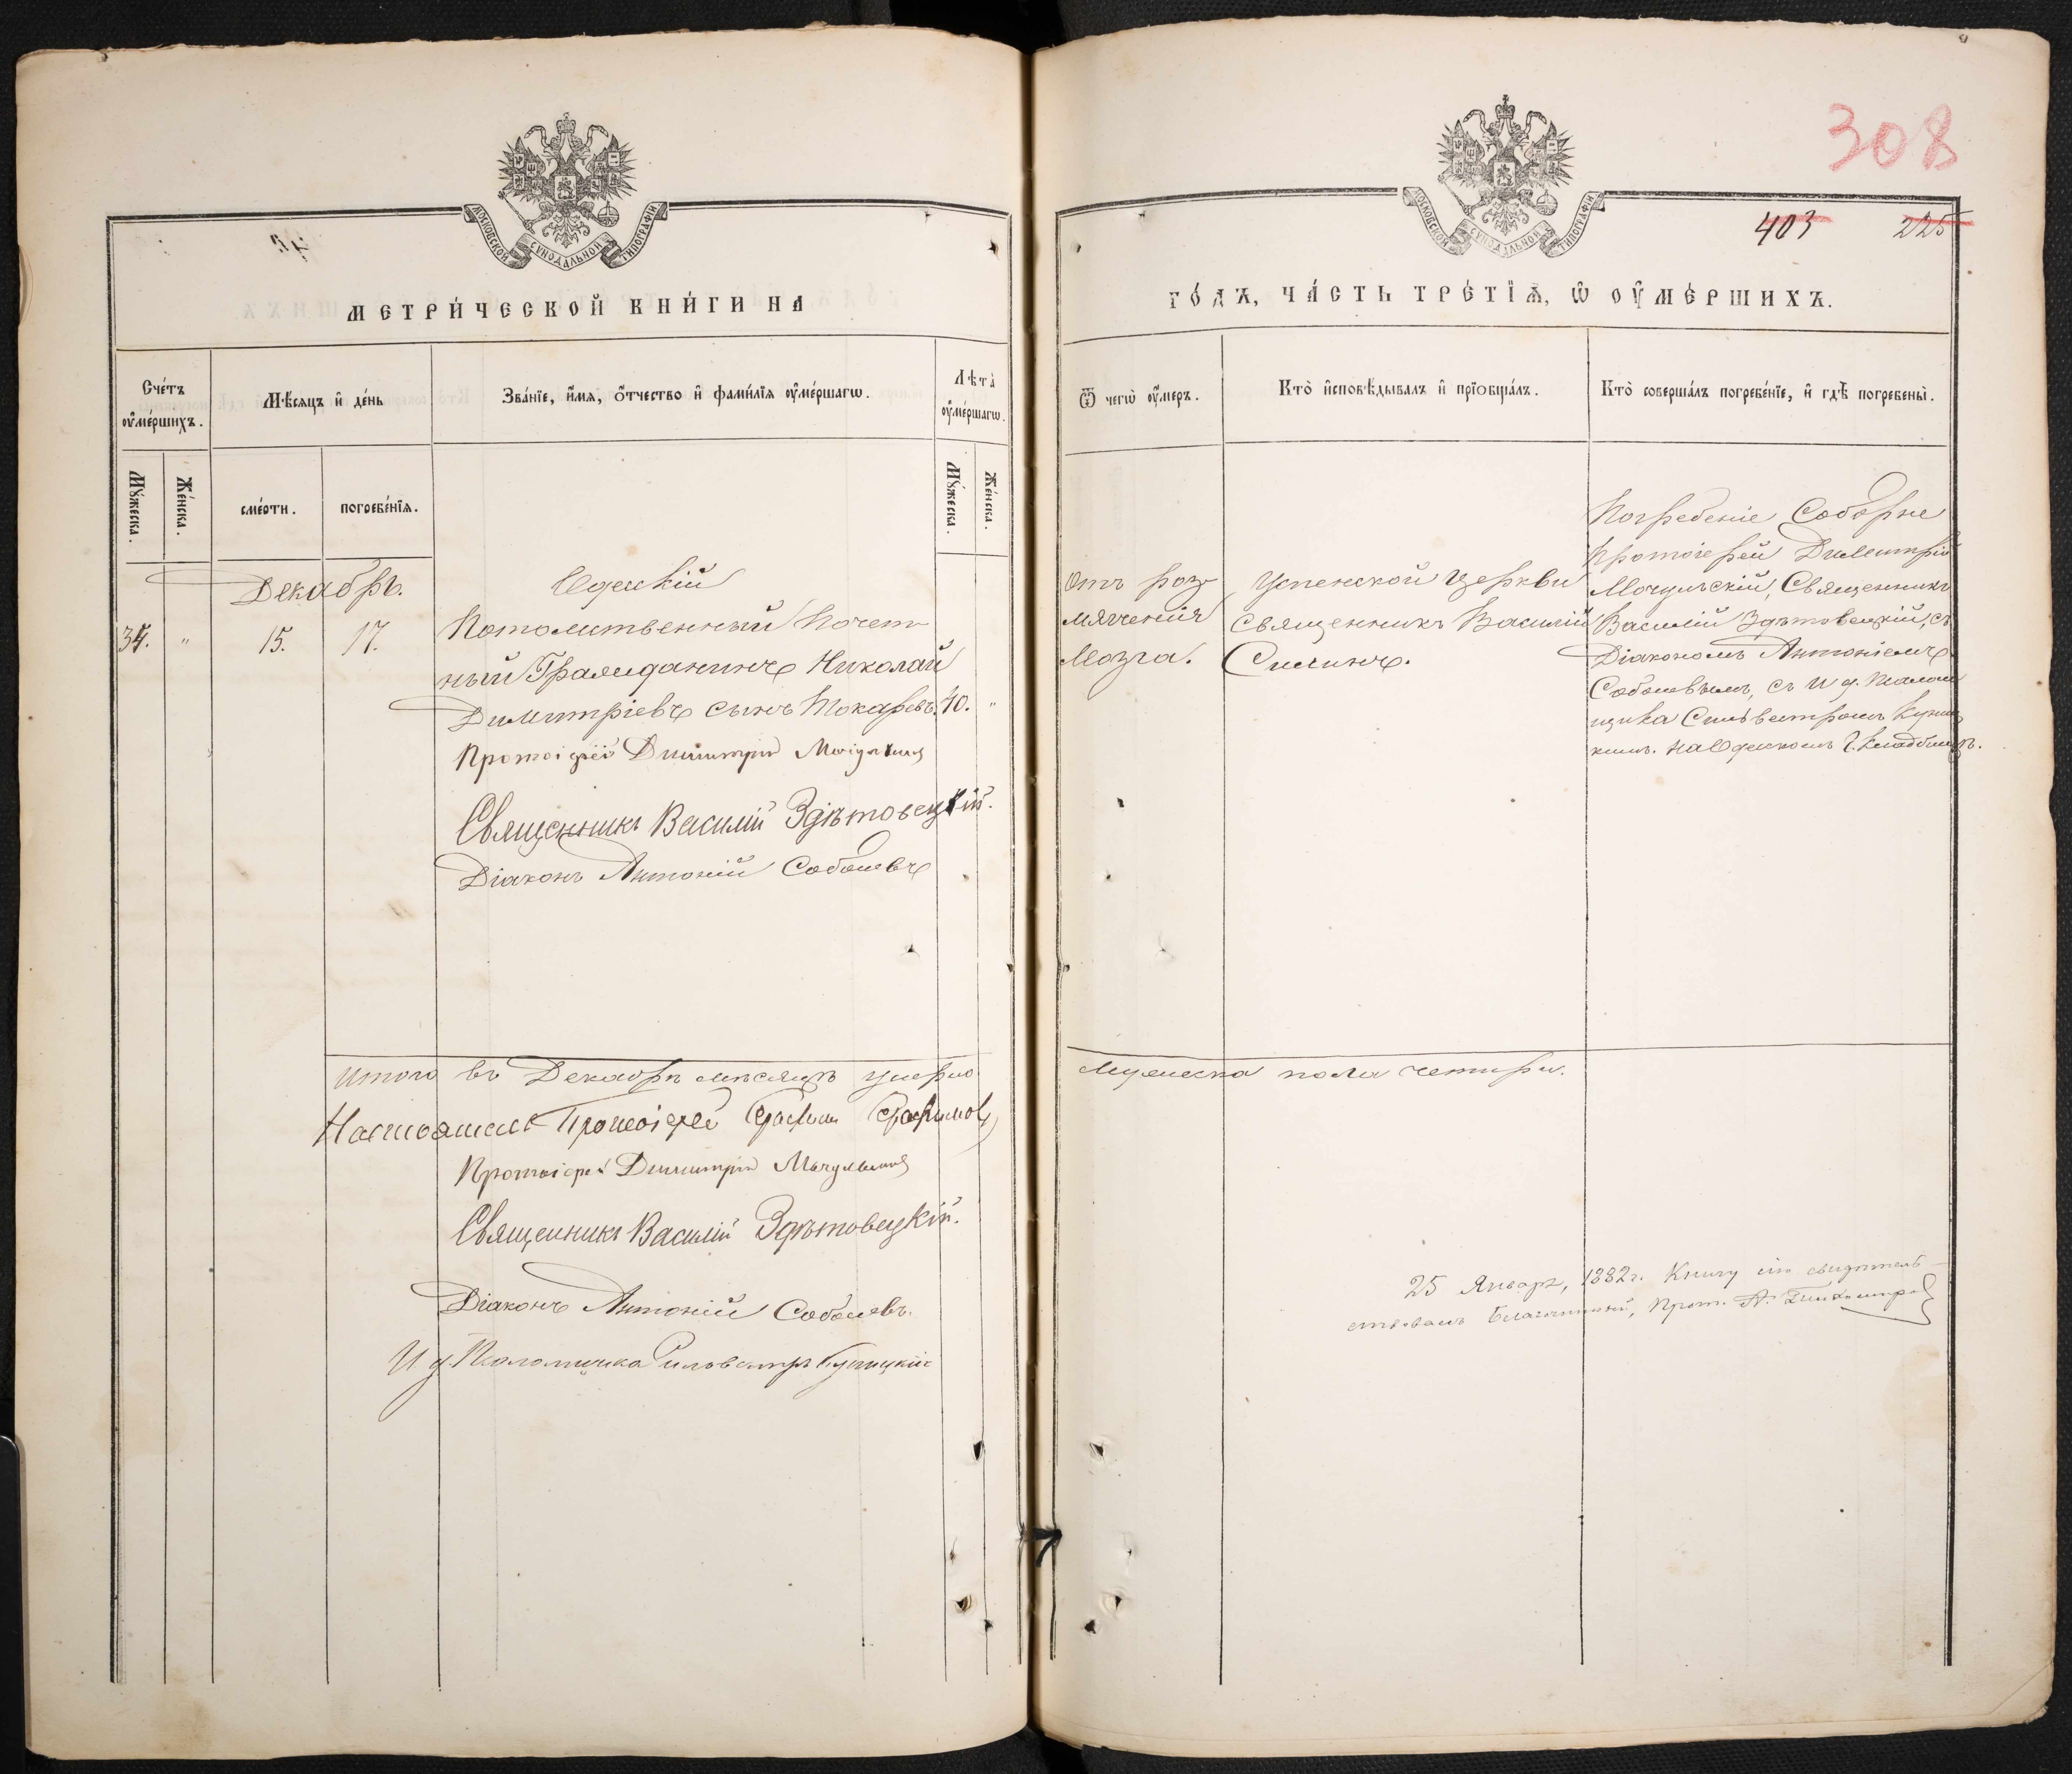 МОСКОВСКОЙ СѴНОДАЛЬНОЙ ТИПОГРАФІИ
МЕТРИ́ЧЕСКОЙ КНИ́ГИ НА
Сче́тъ оу҆ме́ршихъ.
Мѣ́сяцъ и҆ де́нь
Зва́нїе, и҆́мя, ѻ҆́тчество и҆ фами́лїя оу҆ме́ршагѡ.
Лѣта̀ оу҆ме́ршагѡ.
Му́жеска.
Же́нска.
сме́рти.
погребе́нїѧ.
Му́жеска.
Же́нска.
Декабрь.
Одесскій
34. " 15. 17. Потомственный Почет-
ный Гражданинъ Николай
Димитріевъ сынъ Токаревъ. 40. "
Протоіерей Димитрій
Священникъ Василій Здѣтовецкій.
Діаконъ Антоній Соболевъ
Итого въ Декабрѣ мѣсяцѣ умерло
Протоіерей
Протоіерей Димитрій Мачульскій
Священникъ Василій Здѣтовецкій.
Діаконъ Антоній Соболевъ.
И д Псаломщика Сильвестръ
308
МОСКОВСКОЙ СѴНОДАЛЬНОЙ ТИПОГРАФІИ
403 225
ГО́ДЪ, ЧА́СТЬ ТРЕ́ТЇѦ, Ѡ҆ ОУ҆МЕ́РШИХЪ.
Ѿ чегѡ̀ оу҆́меръ.
Кто̀ и҆сповѣ́дывалъ и҆ прїѻбща́лъ.
Кто̀ соверша́лъ погребе́нїе, и҆ гдѣ̀ погребены̀.
Отъ раз-
мягченія
Мозга.
Успенской церкви
священникъ Василій
Погребеніе Соборне
Протоіерей Димитрій
Мачульскій, Священникъ
Василій Здѣтовецкій, съ
Діакономъ Антоніемъ
Соболевымъ, съ И д. Псалом
щика Сильвестромъ
кимъ. на Одесскомъ Г. Кладбищѣ.
Мужеска пола четыри.
25 Января, 1882 г. Книгу сію свидѣтель-
ствовалъ Благочинный, Прот. А.